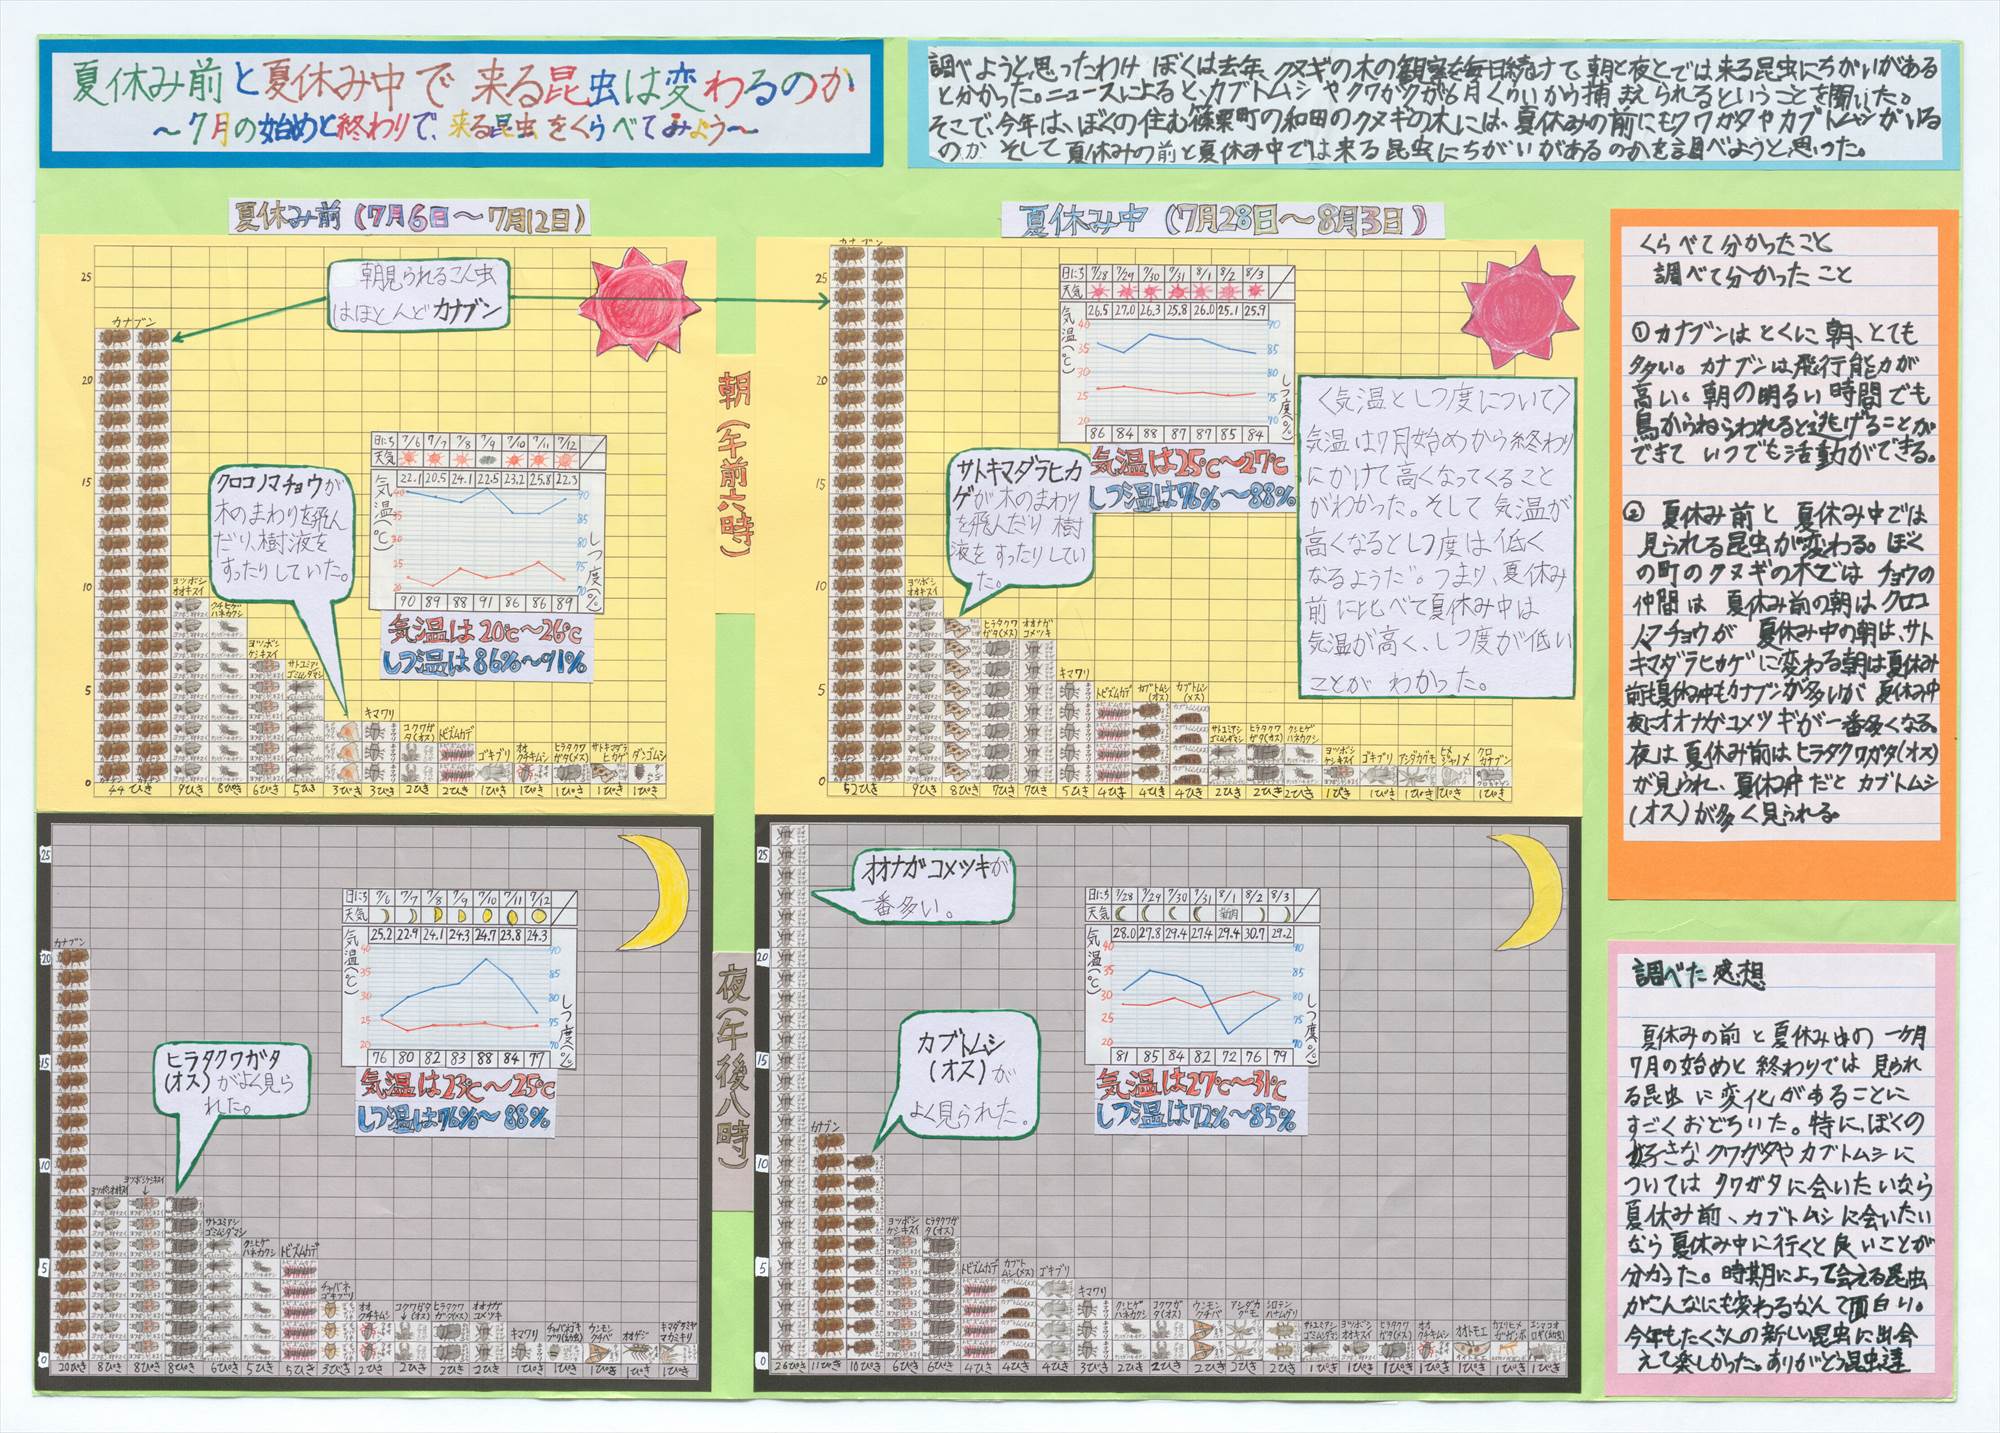 夏休み前と夏休み中で 来る昆虫は変わるのか
～7月の始めと終わりで、来る昆虫をくらべてみよう～
調べようと思ったわけ ぼくは去年、クヌギの木の観察を毎日続けて、朝と夜とでは来る昆虫にちがいがある
と分かった。ニュースによると、カブトムシやクワガタが6月くらいから捕まえられるということを聞いた。
そこで、今年は、ぼくの住む篠栗町の和田のクヌギの木には、夏休みの前にもクワガタやカブトムシがいる
のか そして夏休みの前と夏休み中では来る昆虫にちがいがあるのかを調べようと思った。
夏休み前(7月6日～7月12日)
朝見られるこん虫
はほとんどカナブン
カナブン
クロコノマチョウが
木のまわりを飛ん
だり、樹液を
すったりしていた。
日にち 7/6 7/7 7/8 7/9 7/10 7/11 7/12
天気
22.1 20.5 24.1 22.5 23.2 25.8 22.3
気温(℃)
しつ度(%)
90 89 88 91 86 86 89
気温は20℃～26℃
しつ温は86%～91%
ヨツボシオオキスイ
クチヒゲハネカクシ
ヨツボシケシキスイ
サトユミアシゴミムシダマシ
キマワリ
コクワガタ(オス)
トビズムカデ
ゴキブリ
オオクチキムシ
ヒラタクワガタ(メス)
サトキマダラヒカゲ
ダンゴムシ
44ひき 9ひき 8ぴき 6ぴき 5ひき 3びき 3びき 2ひき 2ひき 1ぴき 1ぴき 1ぴき 1ぴき 1ぴき
朝(午前六時)
夏休み中(7月28日～8月3日)
カナブン
日にち 7/28 7/29 7/30 7/31 8/1 8/2 8/3
天気
26.5 27.0 26.3 25.8 26.0 25.1 25.9
気温(℃)
しつ度(%)
86 84 88 87 87 85 84
気温は25℃～27℃
しつ温は76%～88%
サトキマダラヒカ
ゲが木のまわり
を飛んだり樹
液をすったりしてい
た。
<気温としつ度について>
気温は7月始めから終わり
にかけて高くなってくること
がわかった。そして気温が
高くなるとしつ度は低く
なるようだ。つまり、夏休み
前に比べて夏休み中は
気温が高く、しつ度が低い
ことが わかった。
ヨツボシオオキスイ
ヒラタクワガタ(メス)
オオナガコメツキ
キマワリ
トビズムカデ
カブトムシ(オス)
カブトムシ(メス)
サトユミアシゴミムシダマシ
ヒラタクワガタ(オス)
クシヒゲハネカクシ
ヨツボシケシキスイ
ゴキブリ
アシダカグモ
ヒメジャノメ
クロカナブン
52ひき 9ひき 8ぴき 7ひき 7ひき 5ひき 4ひき 4ひき 4ひき 2ひき 2ひき 2ひき 1ぴき 1ぴき 1ぴき 1ぴき 1ぴき
カナブン
日にち 7/6 7/7 7/8 7/9 7/10 7/11 7/12
天気
25.2 22.9 24.1 24.3 24.7 23.8 24.3
気温(℃)
しつ度(%)
76 80 82 83 88 84 77
気温は23℃～25℃
しつ温は76%～88%
ヒラタクワガタ
(オス)がよく見ら
れた。
ヨツボシオオキスイ
ヨツボシケシキスイ
サトユミアシゴミムシダマシ
クシヒゲハネカクシ
トビズムカデ
チャバネゴキブリ
オオクチキムシ
コクワガタ(オス)
ヒラタクワガタ(メス)
オオナガコメツキ
キマワリ
ウンモンクチバ
オオゲジ
キマダラミヤマカミキリ
20ぴき 8ぴき 8ぴき 8ぴき 6ぴき 5ひき 5ひき 3びき 2ひき 2ひき 2ひき 2ひき 1ぴき 1ぴき 1ぴき 1ぴき 1ぴき
夜(午後八時)
オオナガコメツキが
一番多い。
日にち 7/28 7/29 7/30 7/31 8/1 8/2 8/3
天気 新月
28.0 27.8 29.4 27.4 29.4 30.7 29.2
気温(℃)
しつ度(%)
81 85 84 82 72 76 79
気温は27℃～31℃
しつ温は72%～85%
カブトムシ
(オス)が
よく見られた。
カナブン
ヨツボシケシキスイ
ヒラタクワガタ(オス)
トビズムカデ
カブトムシ(メス)
ゴキブリ
キマワリ
クシヒゲハネカクシ
コクワガタ(オス)
ウンモンクチバ
アシダカグモ
シロテンハナムグリ
サトユミアシゴミムシダマシ
ヨツボシオオキスイ
ヒラタクワガタ(メス)
オオクチキムシ
オオトモエ
26ぴき 11ぴき 10ぴき 6ぴき 6ぴき 4ひき 4ひき 4ひき 3びき 2ひき 2ひき 2ひき 2ひき 2ひき 1ぴき 1ぴき 1ぴき 1ぴき 1ぴき 1ぴき 1ぴき
くらべて分かったこと
調べて分かったこと
①カナブンはとくに朝、とても
多い。カナブンは飛行能力が
高い。朝の明るい時間でも
鳥からねらわれると逃げることが
できていつでも活動ができる。
②夏休み前と夏休み中では
見られる昆虫が変わる。ぼく
の町のクヌギの木ではチョウの
仲間は夏休み前の朝はクロコ
ノマチョウが 夏休み中の朝は、サト
キマダラヒカゲに変わる朝は夏休み
前も夏休み中もカナブンが多いが 夏休み中
夜にオオナガコメツギが一番多くなる。
夜は夏休み前はヒラタクワガタ(オス)
が見られ、夏休み中だとカブトムシ
(オス)が多く見られる。
調べた感想
夏休みの前と夏休み中の一ヶ月
7月の始めと終わりでは見られ
る昆虫に変化があることに
すごくおどろいた。特に、ぼくの
好きなクワガタやカブトムシに
ついてはクワガタに会いたいなら
夏休み前、カブトムシに会いたい
なら夏休み中に行くと良いことが
分かった。時期によって会える昆虫
がこんなにも変わるなんて面白い。
今年もたくさんの新しい昆虫に出会
えて楽しかった。ありがとう昆虫達